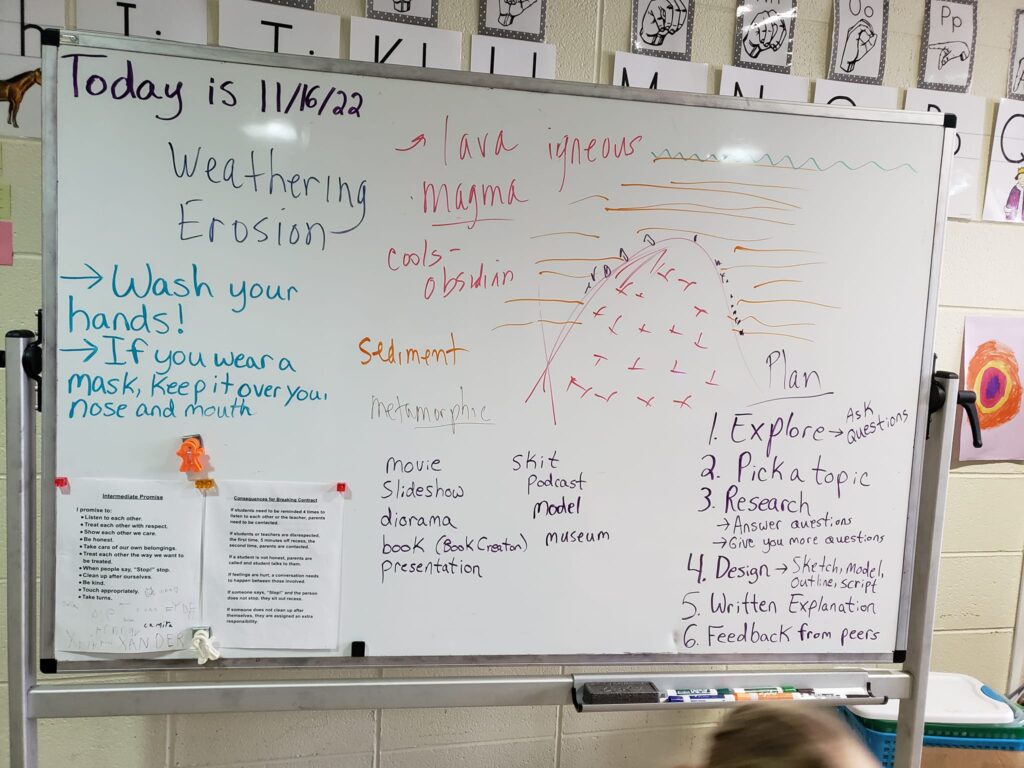 Today is 11/16/22
Weathering
Erosion
→ Wash your
hands!
→ If you wear a
mask, keep it over you,
nose and mouth
→ lava igneous
magma
cools-
obsidian
sediment
metamorphic
movie
Slideshow
diorama
book (Book Creator)
presentation
skit
Podcast
Model
museum
Plan
1. Explore → Ask
Questions
2. Pick a topic
3. Research
→ Answer questions
→ Give you more questions
4. Design → Sketch, model,
outline, script
5. Written Explanation
6. Feedback from peers
Intermediate Promise
I promise to:
• Listen to each other.
• Treat each other with respect.
• Show each other we care.
• Be honest.
• Take care of our own belongings.
• Treat each other the way we want to
be treated.
• When people say, "Stop!" stop.
• Clean up after ourselves.
• Be kind.
• Touch appropriately.
• Take turns.
camila
XANDER
Consequences for Breaking Contract
If students need to be reminded 4 times to
listen to each other or the teacher, parents
need to be contacted.
If students or teachers are disrespected,
the first time, 5 minutes off recess, the
second time, parents are contacted.
If a student is not honest, parents are
called and student talks to them.
If feelings are hurt, a conversation needs
to happen between those involved.
If someone says, "Stop!" and the person
does not stop, they sit out recess.
If someone does not clean up after
themselves, they are assigned an extra
responsibility.
Oo
Pp